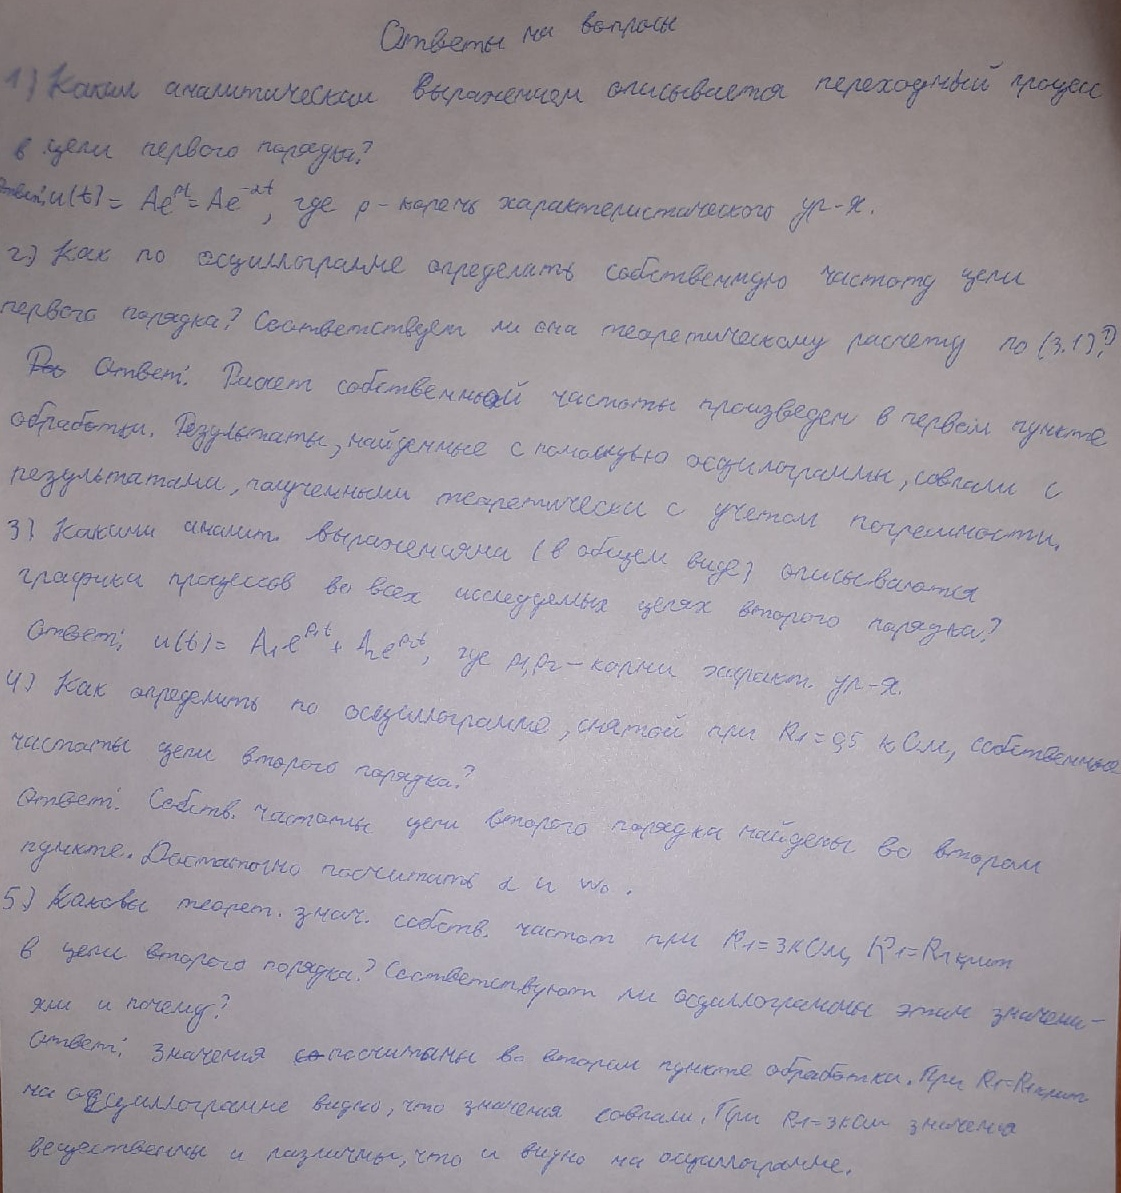 Ответы на вопросы
1) Каким аналитическим выражением описывается переходный процесс
в цепи первого порядка?
Ответ: u(t) = Ae^pt = Ae^-αt, где p - корень характеристического ур-я.
2) Как по осциллограмме определить собственную частоту цепи
первого порядка? Соответствует ли она теоретическому расчету по (3.1)?
Ответ: Расчет собственной частоты произведен в первом пункте
обработки. Результаты, найденные с помощью осциллограммы, совпали с
результатами, полученными теоретически с учетом погрешности.
3) Какими аналит. выражениями (в общем виде) описываются
графики процессов во всех исследуемых цепях второго порядка?
Ответ: u(t) = A₁e^p₁t + A₂e^p₂t, где p₁, p₂ - корни характ. ур-я.
4) Как определить по осциллограмме, снятой при R₁ = 0,5 кОм, собственные
частоты цепи второго порядка?
Ответ: Собств. частоты цепи второго порядка найдены во втором
пункте. Достаточно посчитать α и ω₀.
5) Каковы теорет. знач. собств. частот при R₁ = 3 кОм, R₁ = R₁крит
в цепи второго порядка? Соответствуют ли осциллограммы этим значени-
ям и почему?
Ответ: Значения посчитаны во втором пункте обработки. При R₁ = R₁крит
на осциллограмме видно, что значения совпали. При R₁ = 3 кОм значения
вещественны и различны, что и видно на осциллограмме.